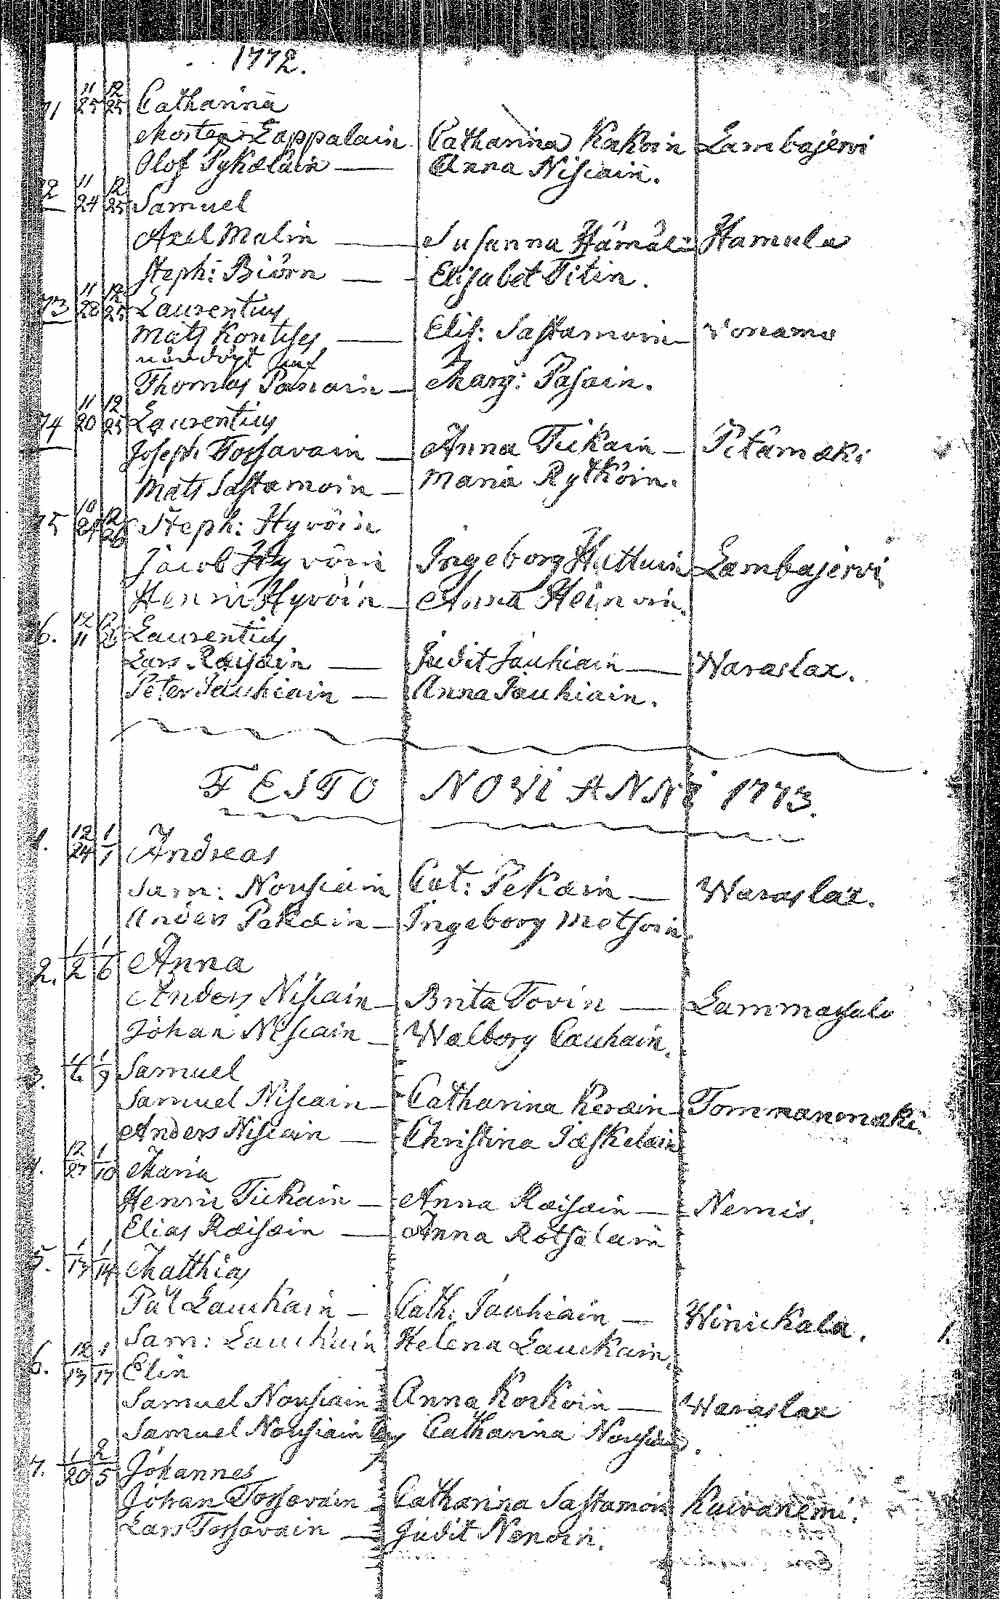 1772.
71 11/25 12/25 Catharina
Morten Lappalain Catharina Kakoin Lambajervi
Olof Pykelain — Anna Niscain.
72 11/24 12/25 Samuel
Axel Malin — Susanna Hämäl: Hamula
Steph: Biörn — Elisabet Titin.
73 11/28 12/25 Laurentius
Mats Kontifs — Elis: Sastamoin — Vonamo
nöddöpt
Thomas Panain — Marg: Pasain.
74 11/20 12/25 Laurentius
Joseph Tossavain — Anna Tickain — Pitämäki
Mats Sastamoin — Maria Rytköin.
75 10/24 12/26 Steph: Hyvöin
Jacob Hyvöin Ingeborg Huttuin Lambajervi
Henric Hyvöin — Anna Heinoin.
76. 12/11 12/26 Laurentius
Lars Räisäin — Judit Jauhiain — Waraslax.
Peter Jauhiain — Anna Jauhiain.
FESTO NOVI ANNI 1773.
1. 12/24 1/1 Andreas
Sam: Nousiain Cat: Pekäin — Waraslax.
Anders Pekäin — Ingeborg Metsoin
2. 1/2 1/6 Anna
Anders Niscain — Brita Tovin — Lammasalo
Johan Niscain — Walborg Cauhain.
3. 1/6 1/9 Samuel
Samuel Niscain — Catharina Keräin — Tommanmäki.
Anders Niscain — Christina Jäskelain
4. 12/27 1/10 Maria
Henric Tickain — Anna Räisäin — Nemis.
Elias Räisäin — Anna Rotsalain
5. 1/13 1/14 Matthias
Pål Lauckain — Cath: Jauhiain — Winickala. 1.
Sam: Lauckain Helena Lauckain.
6. 12/13 1/17 Elin
Samuel Nousiain Anna Korkoin — Waraslax
Samuel Nousiain Catharina Nousiain.
7. 1/20 2/5 Johannes
Johan Tossavain — Catharina Sastamoin Kaivanemi.
Lars Tossavain — Judit Nenoin.